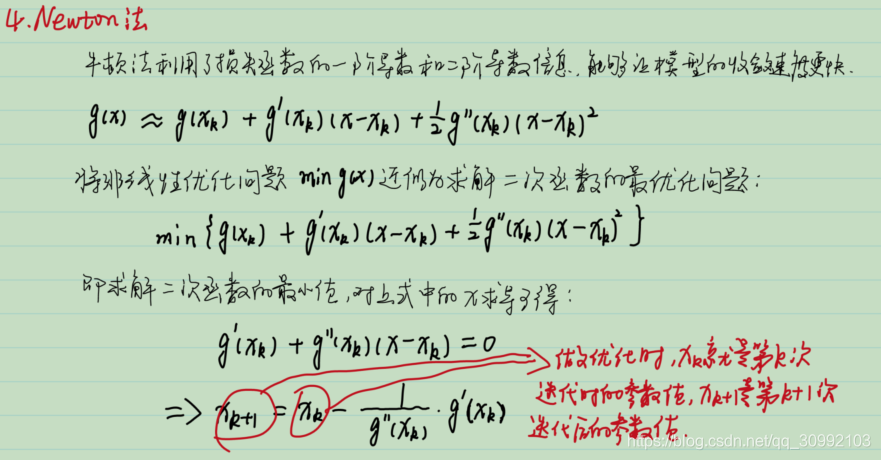 4.Newton法
牛顿法利用了损失函数的一阶导数和二阶导数信息,能够让模型的收敛速度更快.
g(x) ≈ g(xₖ) + g'(xₖ)(x-xₖ) + ½g''(xₖ)(x-xₖ)²
将非线性优化问题 min g(x) 近似为求解二次函数的最优化问题:
min {g(xₖ) + g'(xₖ)(x-xₖ) + ½g''(xₖ)(x-xₖ)²}
即求解二次函数的最小值,对上式中的x求导可得:
g'(xₖ) + g''(xₖ)(x-xₖ)=0
做优化时,xₖ就是第k次
=> xₖ₊₁ = xₖ - 1/g''(xₖ) · g'(xₖ)
迭代时的参数值,xₖ₊₁是第k+1次
迭代后的参数值.
https://blog.csdn.net/qq_30992103